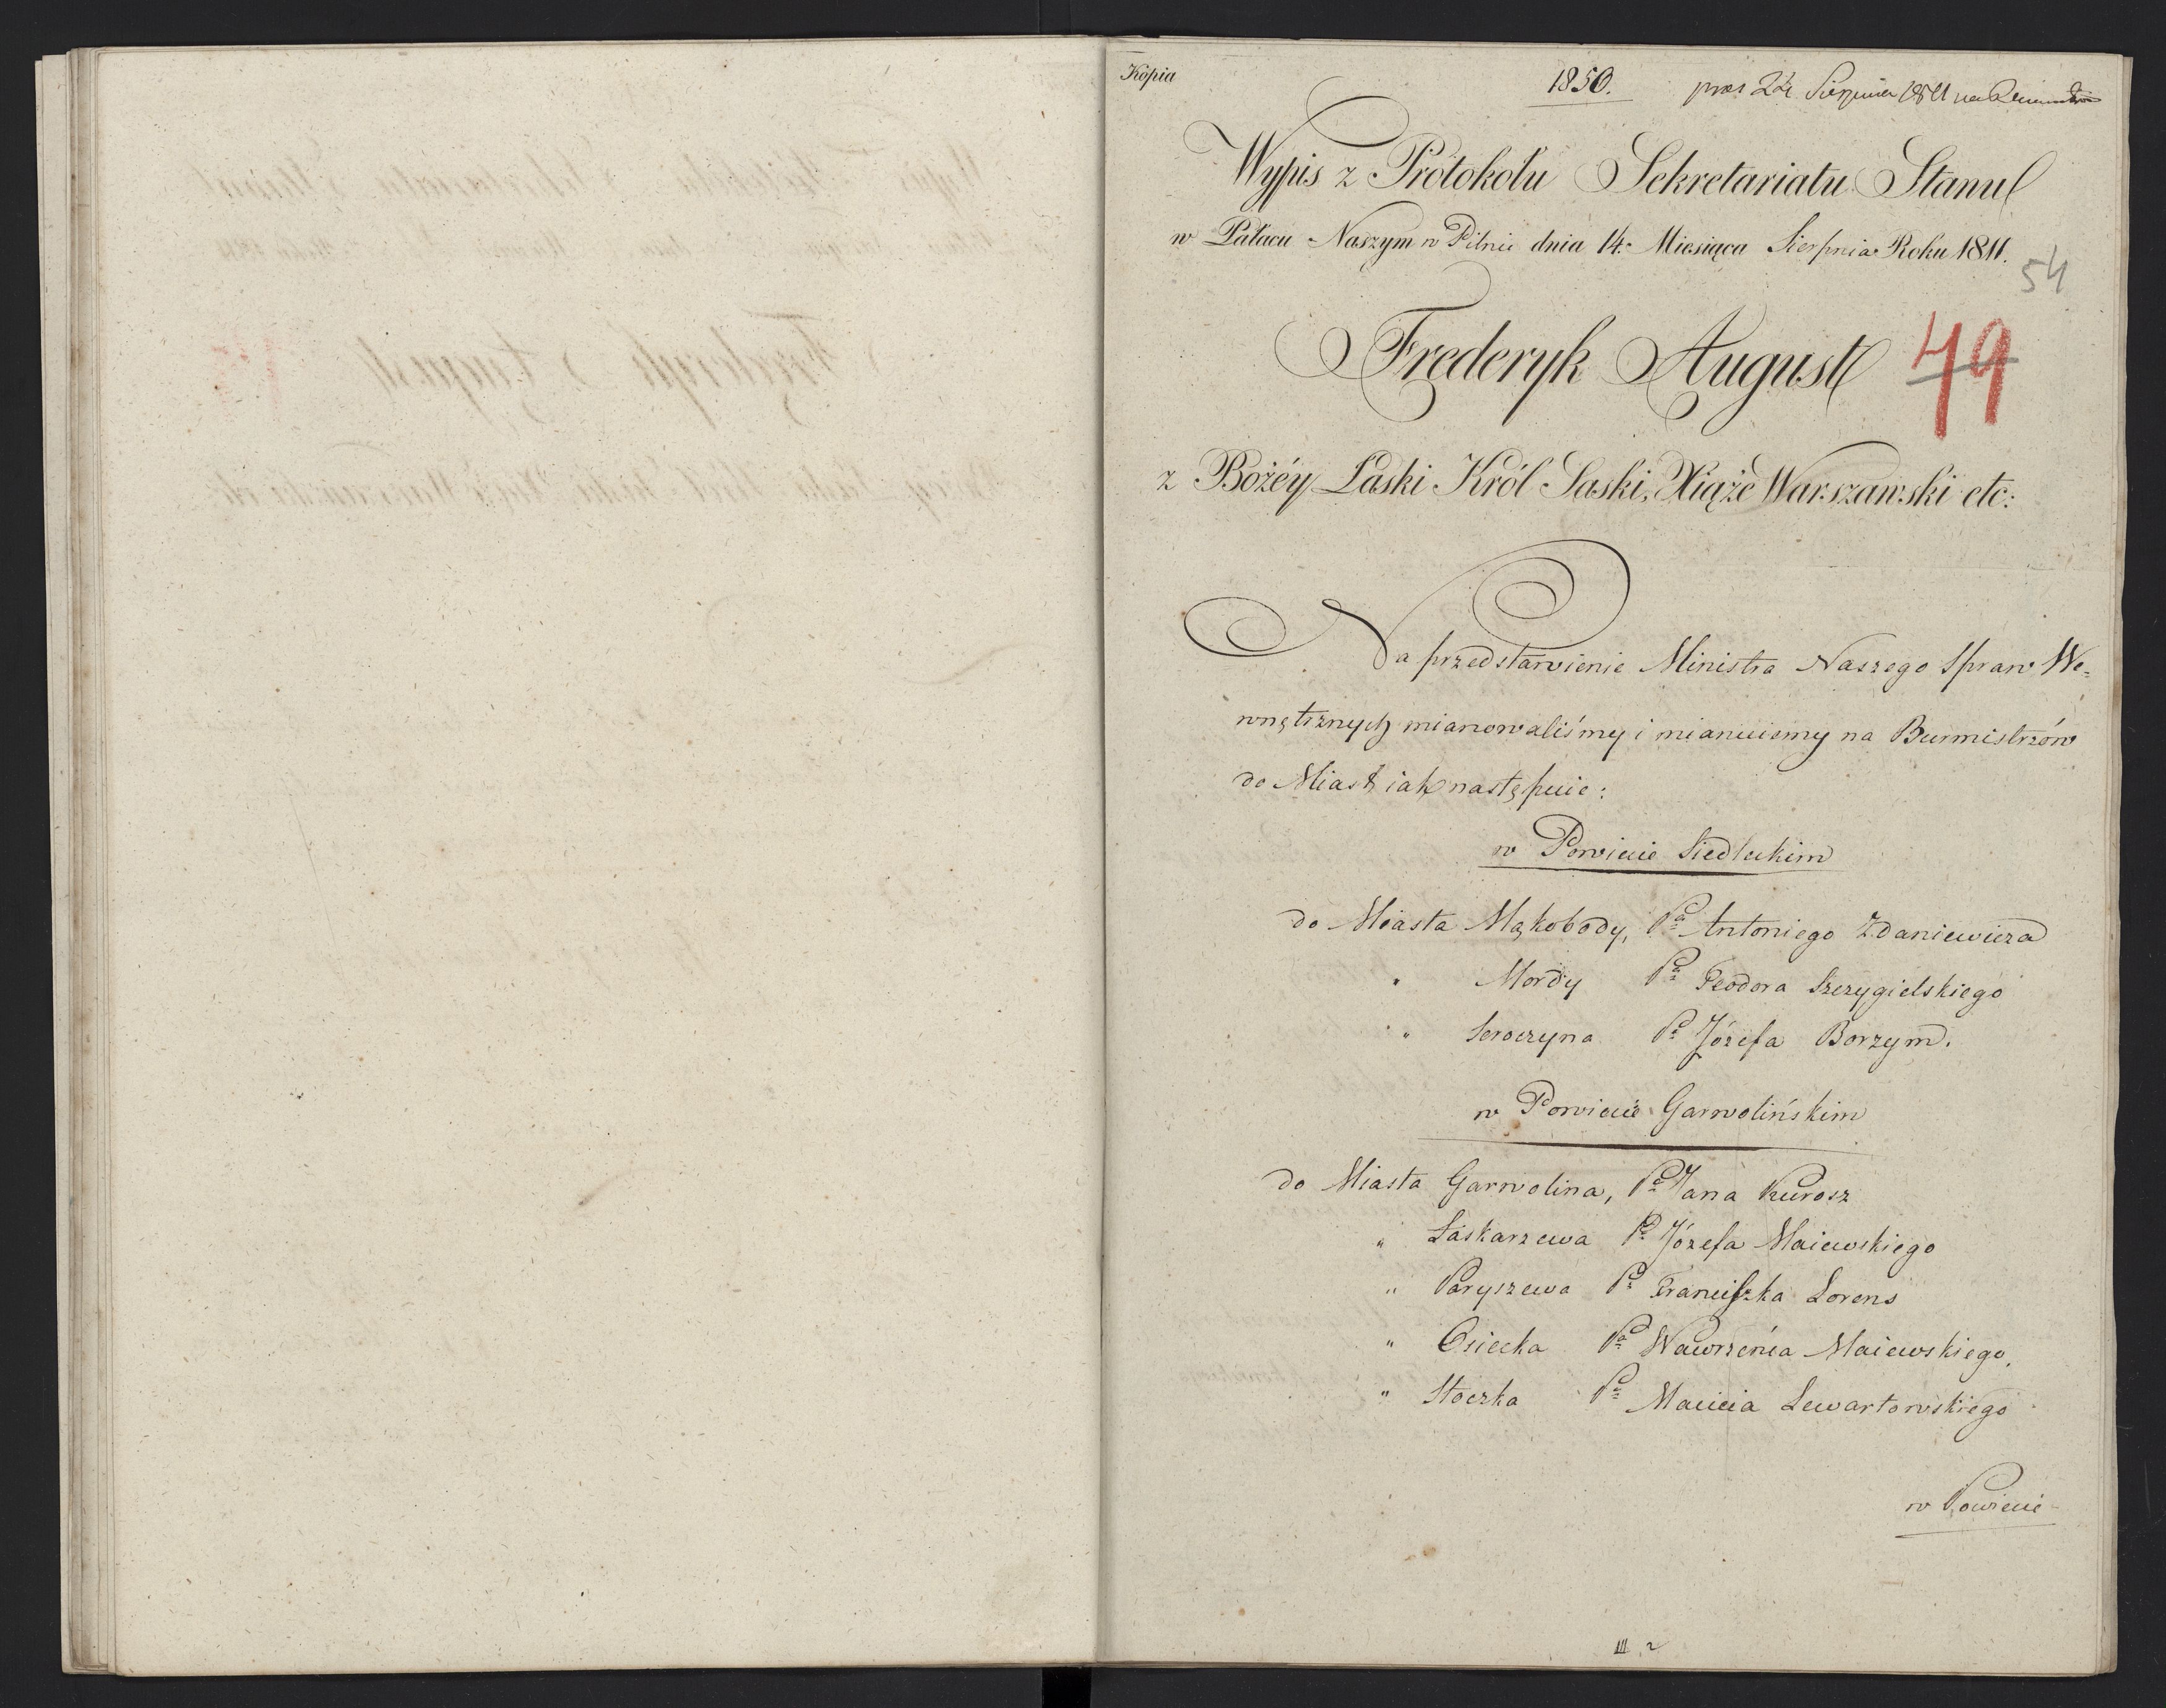 Kopia
1850.
præs 24 Sierpnia 1811 na
Wypis z Protokołu Sekretariatu Stanu
w Pałacu Naszym w Pilnie dnia 14. Miesiąca Sierpnia Roku 1811.
54
Frederyk August
49
z Bożéy Łaski Król Saski, Xiąże Warszawski etc:
Na przedstawienie Ministra Naszego Spraw We=
wnętrznych mianowaliśmy i mianuiemy na Burmistrzów
do Miast iak następuie:
w Powiecie Siedleckim
do Miasta Mąkobody, Pa Antoniego Zdaniewicza
" Mordy Pa Teodora Szczygielskiego
" Seroczyna Pa Józefa Borzym.
w Powiecie Garwolińskim
do Miasta Garwolina, Pa Jana Kurosz
" Łaskarzewa Pa Józefa Maiewskiego
" Paryszewa Pa Franciszka Lorens
" Osiecka Pa Wawrzeńca Maiewskiego,
" Stoczka Pa Macieia Lewartowskiego
w Powiecie
III 2